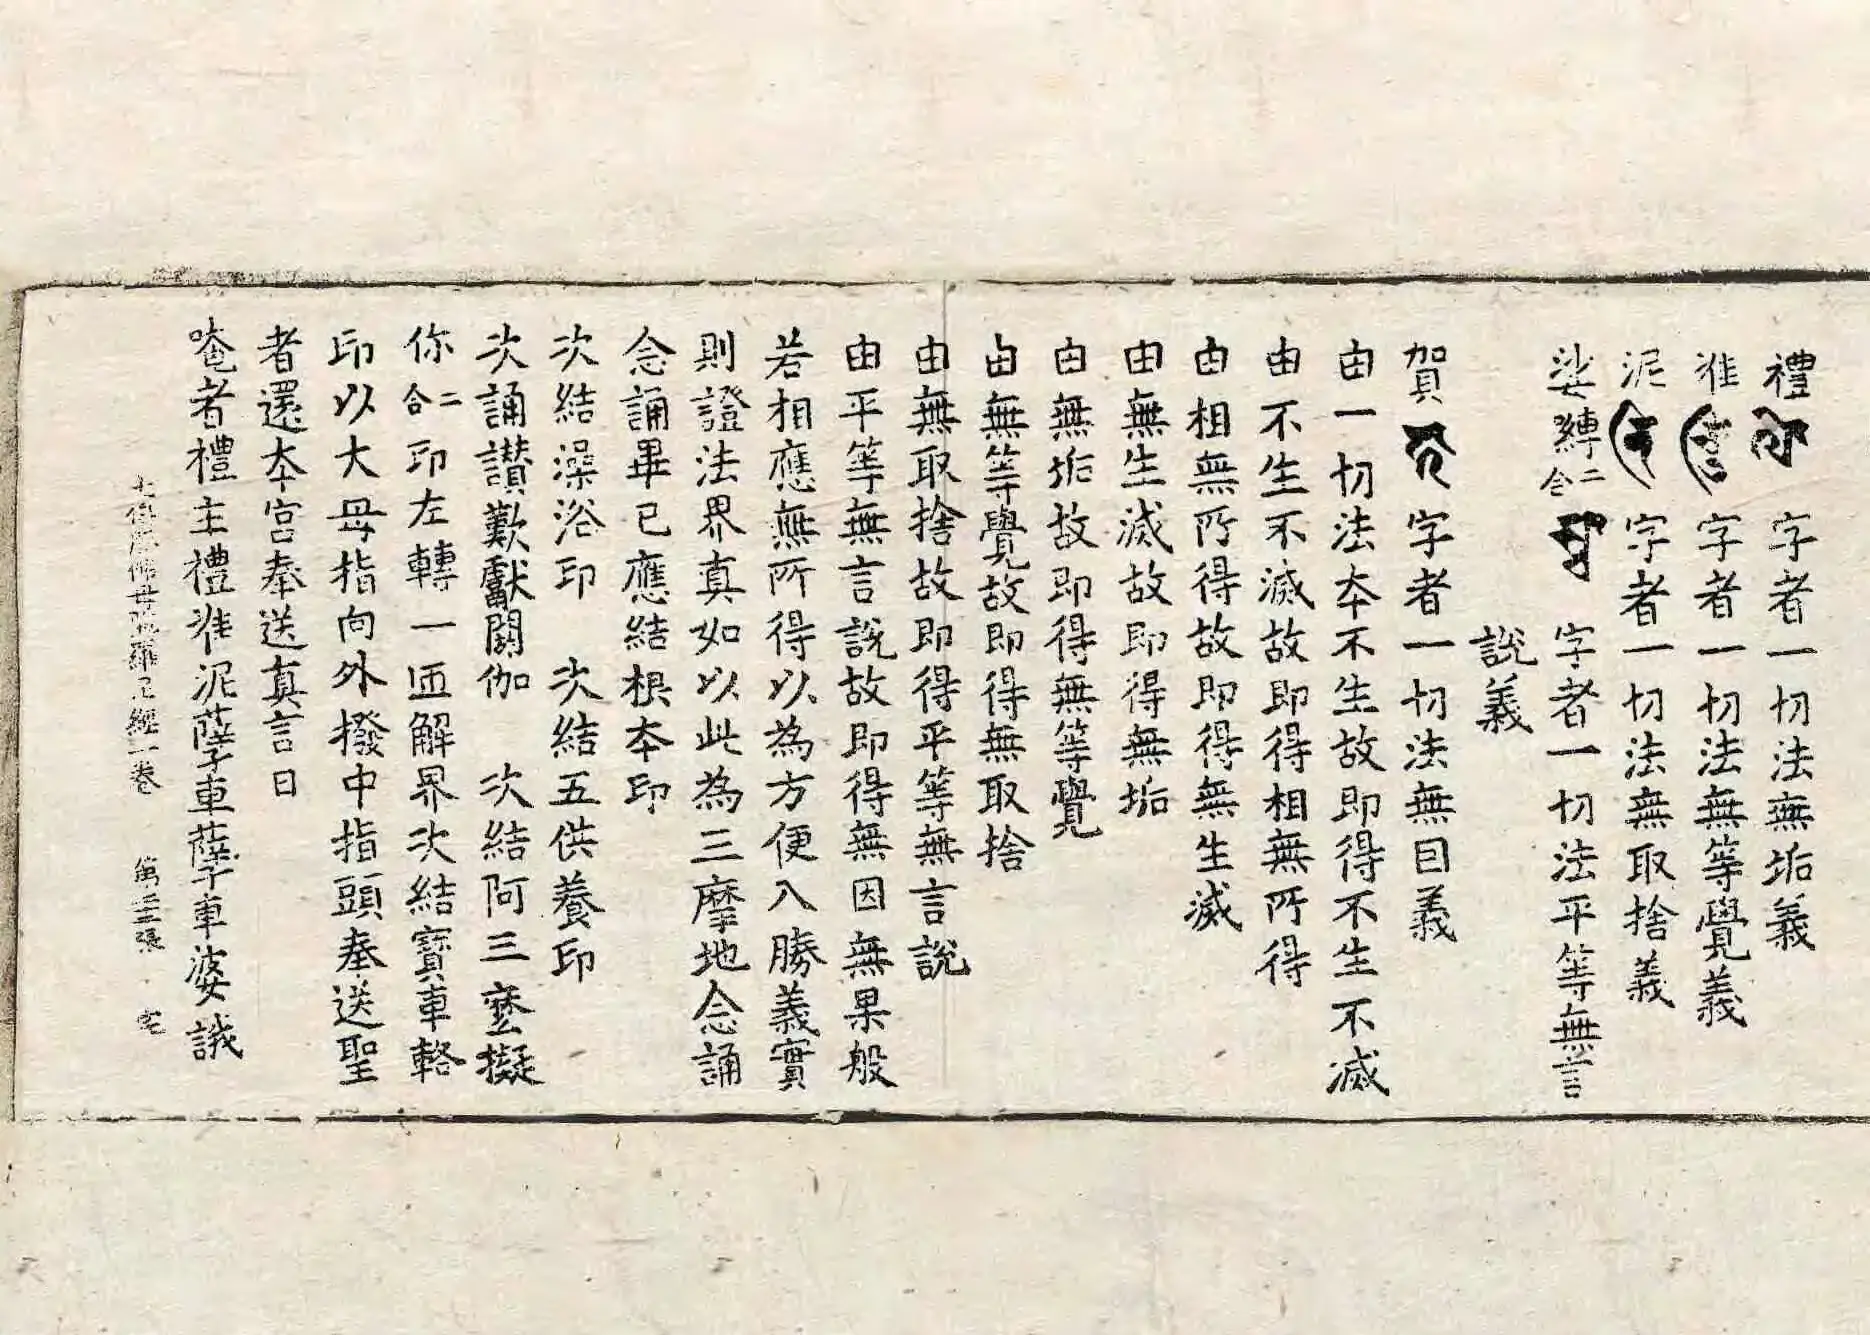 禮字者一切法無垢義
准字者一切法無等覺義
泥字者一切法無取捨義
娑縛二合字者一切法平等無言
說義
賀字者一切法無因義
由一切法本不生故即得不生不滅
由不生不滅故即得相無所得
由相無所得故即得無生滅
由無生滅故即得無垢
由無垢故即得無等覺
由無等覺故即得無取捨
由無取捨故即得平等無言說
由平等無言說故即得無因無果般
若相應無所得以為方便入勝義實
則證法界真如以此為三摩地念誦
念誦畢已應結根本印
次結澡浴印 次結五供養印
次誦讃歎獻閼伽 次結阿三麼擬
你二合印左轉一匝解界次結寶車輅
印以大母指向外撥中指頭奉送聖
者還本宮奉送真言曰
唵者禮主禮准泥孽車孽車婆誐
佛母 經一卷 第 張 宅